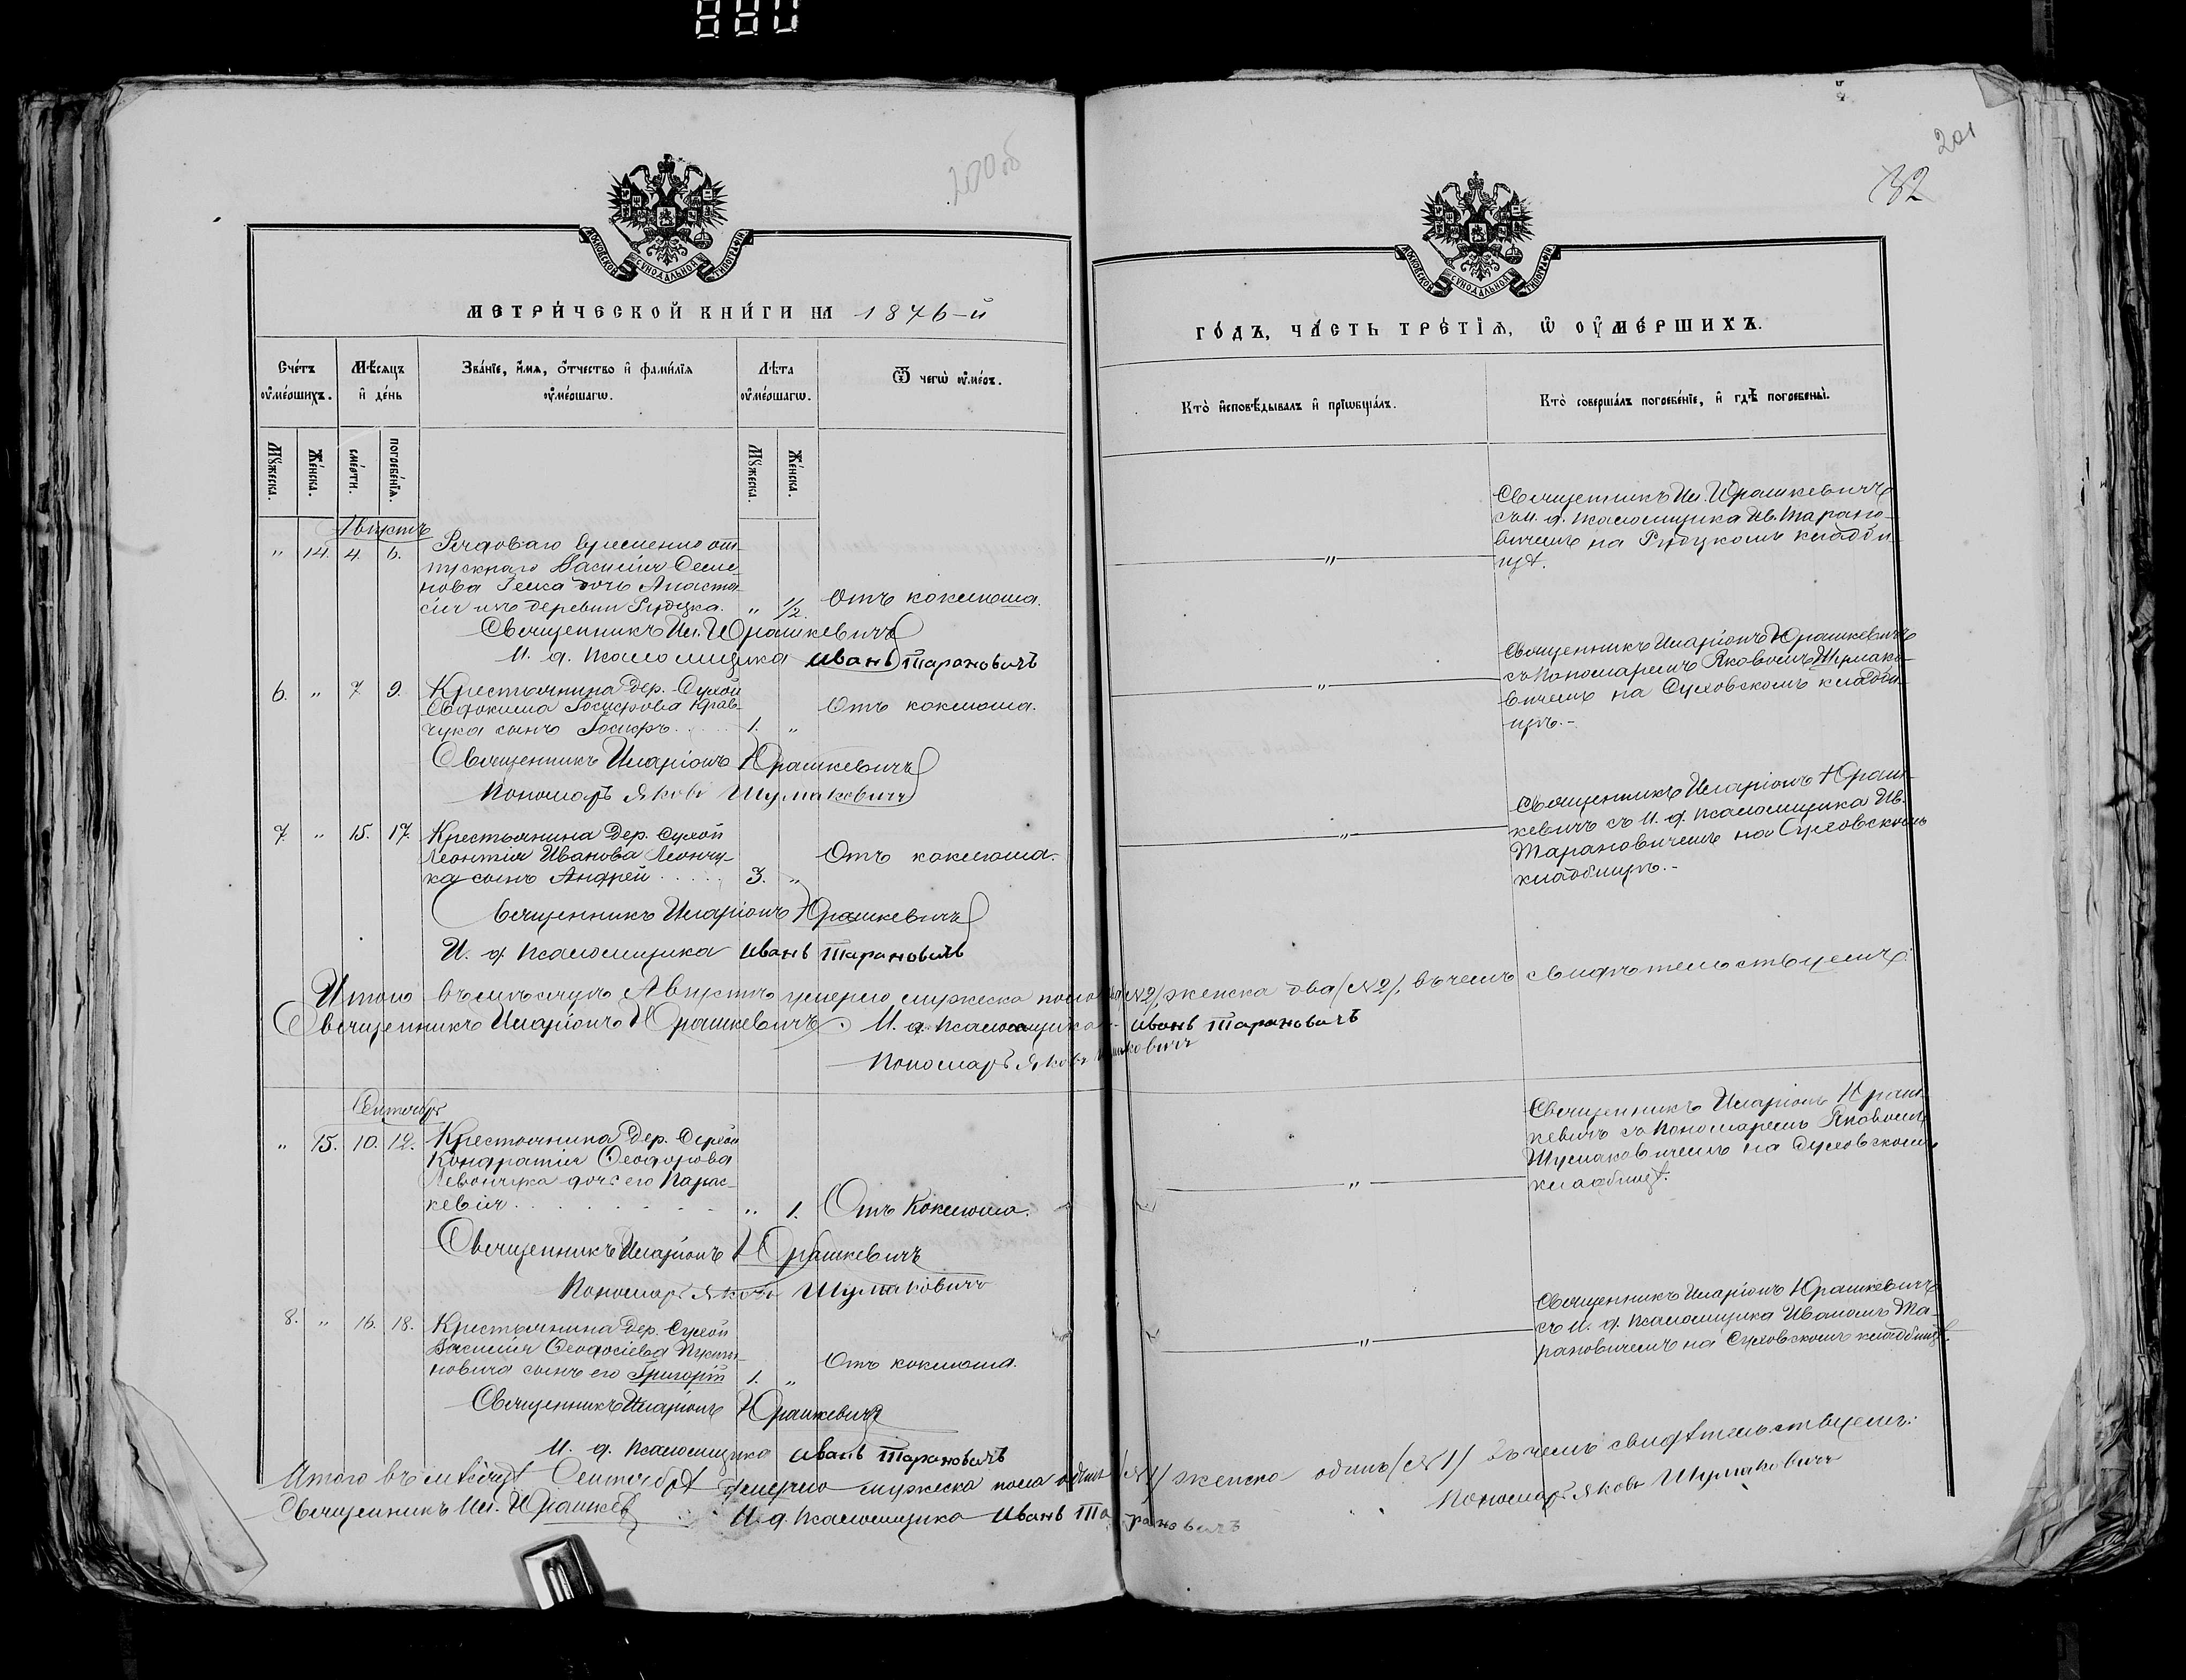 200об
201
32
МОСКОВСКОЙ СѴНОДАЛЬНОЙ ТИПОГРАФІИ
МЕТРИ́ЧЕСКОЙ КНИ́ГИ НА 1876-й
Сче́тъ оу҆ме́ршихъ.
Мѣ́сяцъ и҆ де́нь
Зва́нїе, и҆́мя, ѻ҆́тчество и҆ фами́лїя оу҆ме́ршагѡ.
Лѣ́та оу҆ме́ршагѡ.
Ѿ чегѡ̀ оу҆́меръ.
Мꙋ́жеска.
Же́нска.
сме́рти.
погребе́нїя.
Мꙋ́жеска.
Же́нска.
Августъ
" 14. 4. 6. Рядоваго временно от-
пускнаго Василія Семе-
нова сына дочь Анаста-
сія изъ деревни Рудцка. " 1/2. Отъ коклюша.
Священникъ Ил. Юрашкевичъ
И. д. псаломщика Иванъ Тарановичъ
6. " 7. 9. Крестьянина дер. Сухой
Евдокима Іосифова Крав-
чука сынъ Іосифъ..... 1. " Отъ коклюша.
Священникъ Иларіонъ Юрашкевичъ
Пономарь Яковъ Шумаковичъ
7. " 15. 17. Крестьянина дер. Сухой
Леонтія Иванова Леончу-
ка сынъ Андрей..... 3. " Отъ коклюша.
Священникъ Иларіонъ Юрашкевичъ
И. д. псаломщика Иванъ Тарановичъ
Итого въ мѣсяцѣ Августѣ умерло мужеска пола два (№2), женска два (№2), въ чемъ свидѣтельствуемъ:
Священникъ Иларіонъ Юрашкевичъ. И. д. псаломщика Иванъ Тарановичъ
Пономарь Яковъ Шумаковичъ
Сентябрь
" 15. 10. 12. Крестьянина дер. Сухой
Кондратія Ѳеодорова
Левончука дочь его Парас-
кевія......... " 1. Отъ Коклюша.
Священникъ Иларіонъ Юрашкевичъ
Пономарь Яковъ Шумаковичъ
8. " 16. 18. Крестьянина дер. Сухой
Василія Ѳеодосіева
сынъ его Григорій 1. " Отъ коклюша.
Священникъ Иларіонъ Юрашкевичъ
И. д. псаломщика Иванъ Тарановичъ
Итого въ мѣсяцѣ Сентябрѣ умерло мужеска пола одинъ (№1) женска одинъ (№1) въ чемъ свидѣтельствуемъ:
Священникъ Ил. Юрашкев И. д. Псаломщика Иванъ Тарановичъ Пономарь Яковъ Шумаковичъ
МОСКОВСКОЙ СѴНОДАЛЬНОЙ ТИПОГРАФІИ
ГО́ДЪ, ЧА́СТЬ ТРЕ́ТІѦ, Ѡ҆ ОУ҆МЕ́РШИХЪ.
Кто̀ и҆сповѣ́дывалъ и҆ прїѡбща́лъ.
Кто̀ соверша́лъ погребе́нїе, и҆ гдѣ̀ погребены̀.
" Священникъ Ил. Юрашкевичъ
съ И. д. псаломщика Ив. Тарано-
вичемъ на Рудцкомъ кладби-
щѣ.
" Священникъ Иларіонъ Юрашкевичъ
съ Пономаремъ Яковомъ Шумако-
вичемъ на Суховскомъ кладби-
щѣ.-
" Священникъ Иларіонъ Юраш-
кевичъ съ И. д. псаломщика Ив.
Тарановичемъ на Суховскомъ
кладбищѣ.-
" Священникъ Иларіонъ Юраш-
кевичъ съ Пономаремъ Яковомъ
Шумаковичемъ на Суховскомъ
кладбищѣ.
" Священникъ Иларіонъ Юрашкевичъ
съ И. д. псаломщика Иваномъ Та-
рановичемъ на Суховскомъ кладбищѣ.